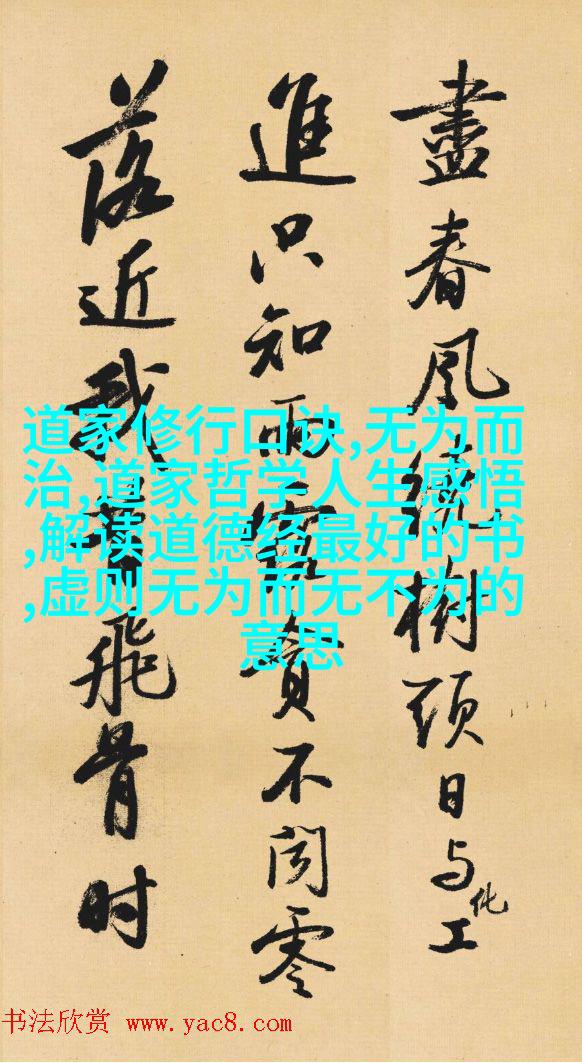 盡春風繞樹頭日与化工
進只知雨露貪不聞零
落近我昔飛骨时
道家修行口诀,无为而
治,道家哲学人生感悟
,解读道德经最好的书
,虚则无为而无不为的
意思
书法欣赏 www.yac8.com